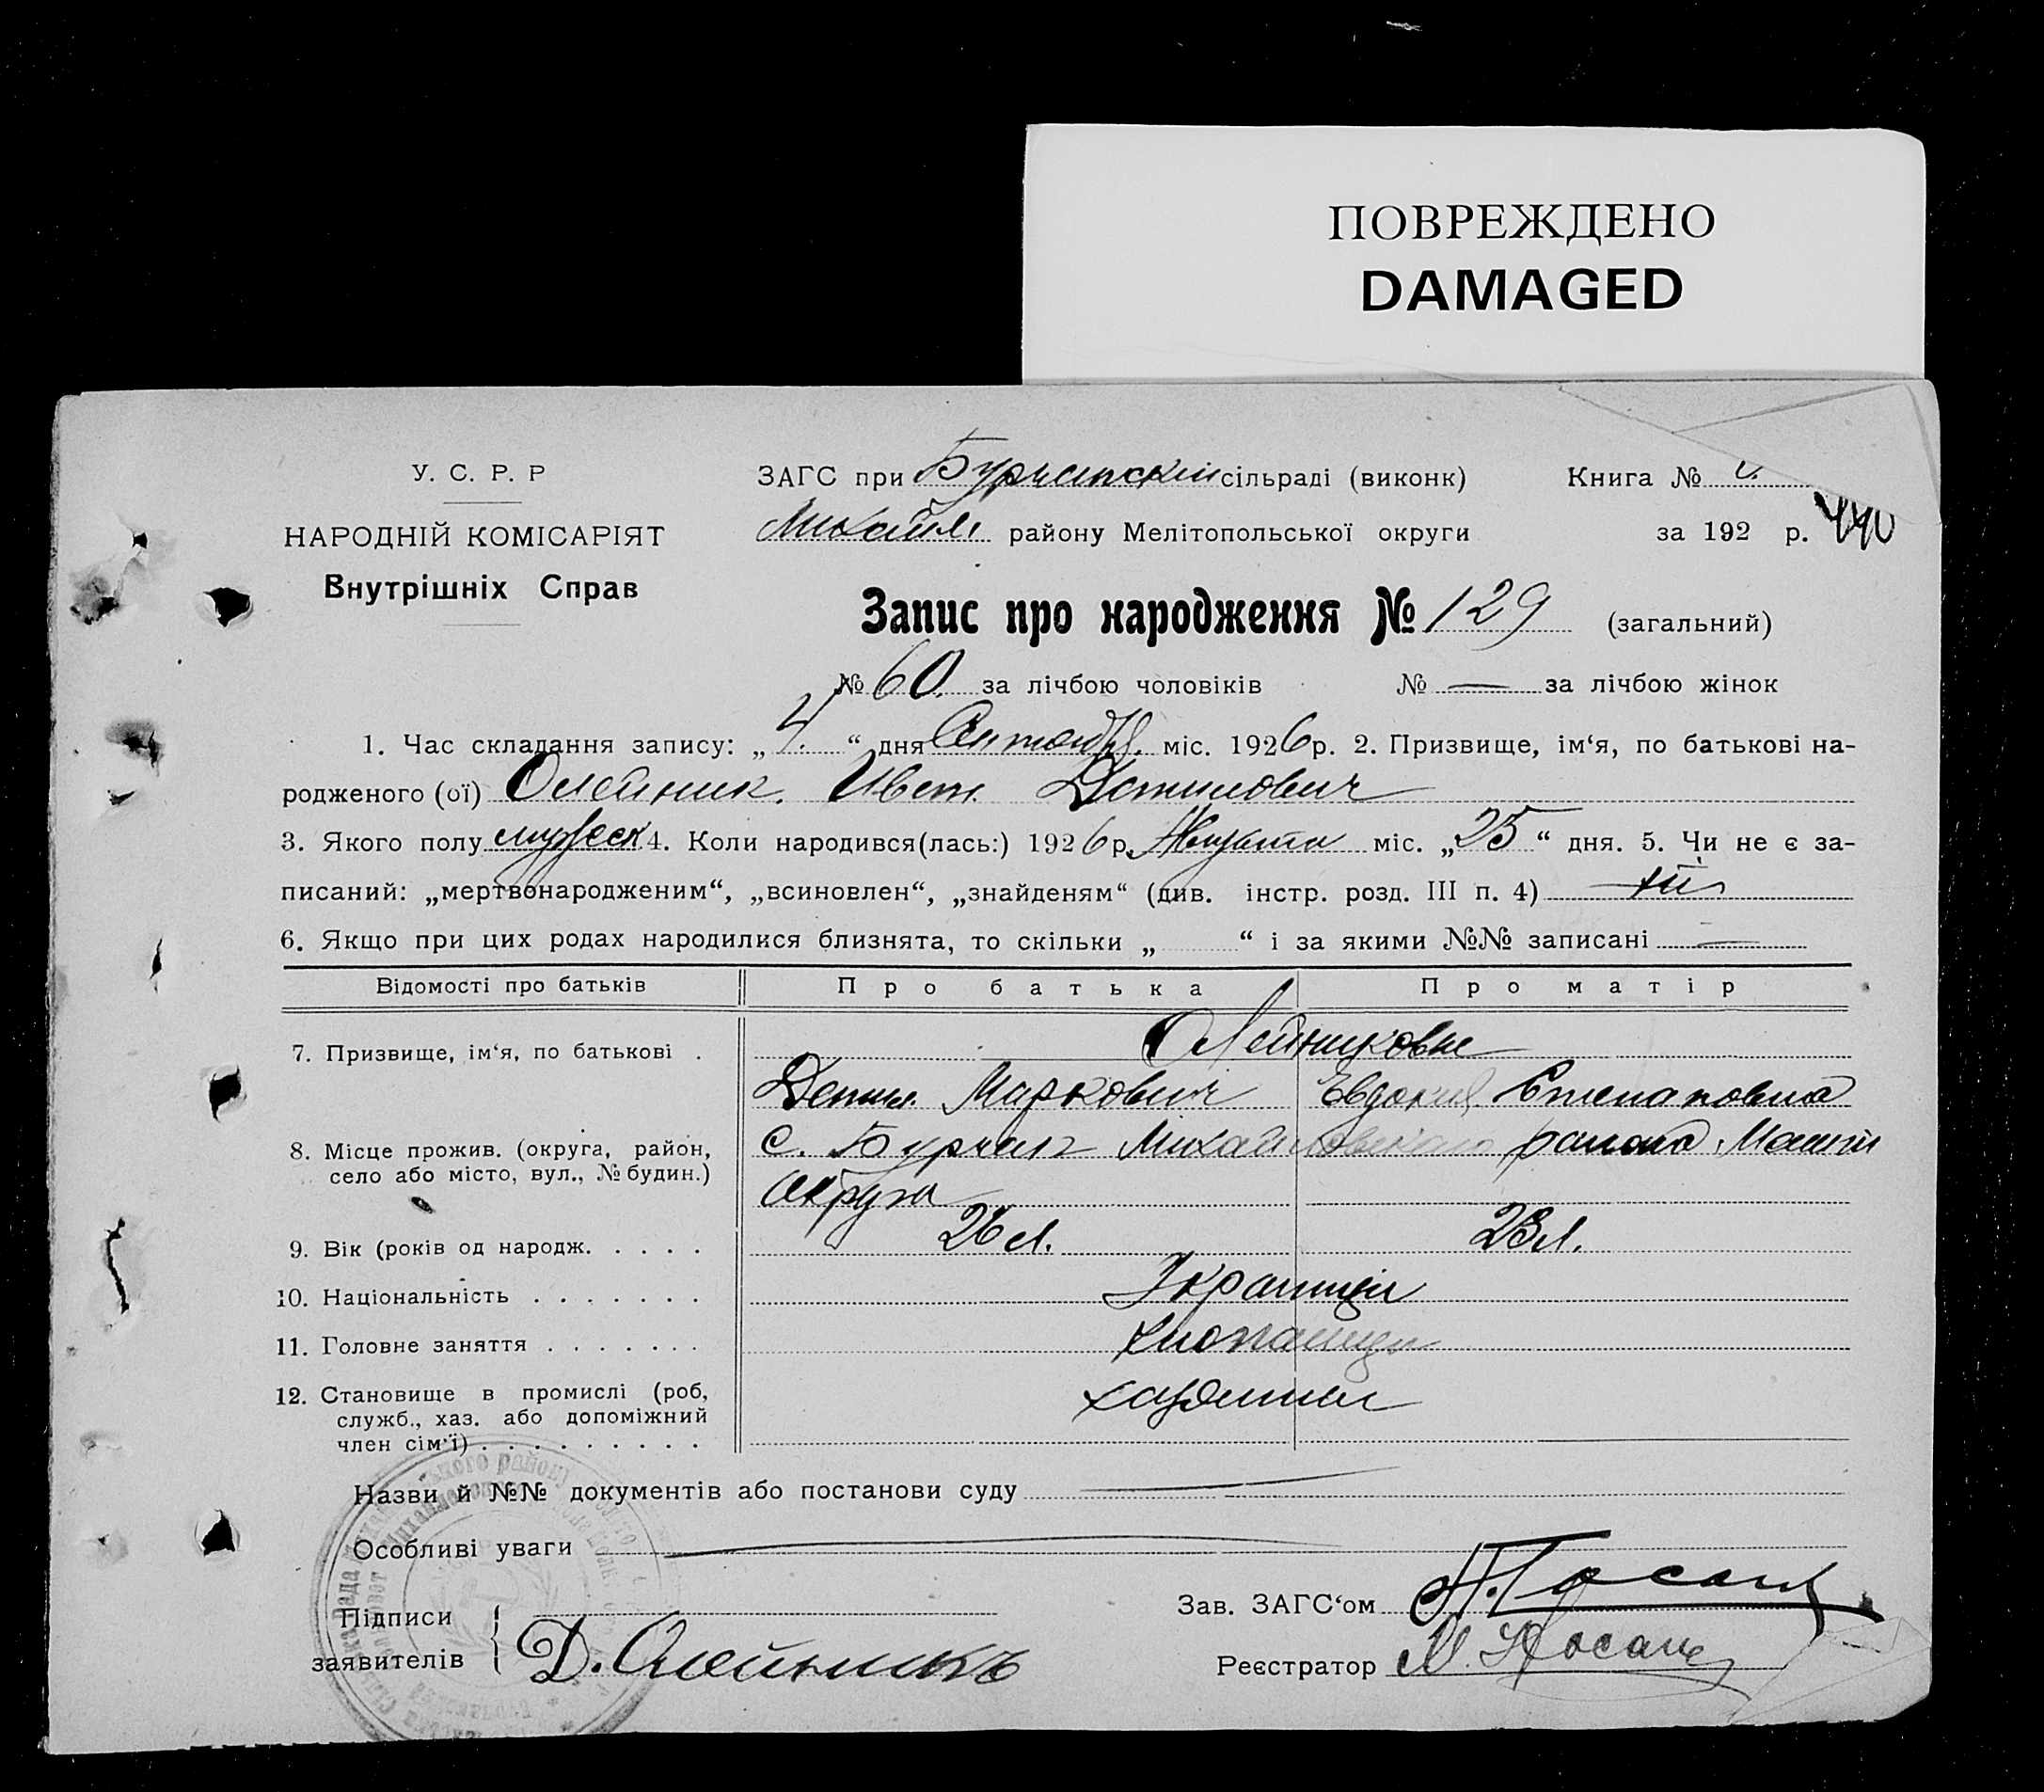 ПОВРЕЖДЕНО
DAMAGED
У. С. Р. Р
ЗАГС при Бурчапский сільраді (виконк)
Книга №
НАРОДНІЙ КОМІСАРІЯТ
Михайл. району Мелітопольської округи
за 192 р. 440
Внутрішніх Справ
Запис про народження № 129 (загальний)
№ 60. за лічбою чоловіків № — за лічбою жінок
1. Час складання запису: „ 4. “ дня міс. 1926 р. 2. Призвище, ім‘я, по батькові на-
родженого (ої) Олейник. Иван Данилович
3. Якого полу мужеск 4. Коли народився(лась:) 1926 р. Августа міс. „ 25 “ дня. 5. Чи не є за-
писаний: „мертвонародженим“, „всиновлен“, „знайденям“ (див. інстр. розд. III п. 4)
6. Якщо при цих родах народилися близнята, то скільки „ “ і за якими №№ записані —
Відомості про батьків Про батька Про матір
7. Призвище, ім‘я, по батькові . Олейниковы
Данил. Маркович Евдокия Степановна
8. Місце прожив. (округа, район, с. Бурчак Михайловского района
село або місто, вул., № будин.) Округа
9. Вік (років од народж. . . . . 26 л. 23 л.
10. Національність . . . . . . . Украинци
11. Головне заняття . . . . . . .
12. Становище в промислі (роб,
служб., хаз. або допоміжний
член сім‘ї) . . . . . . . . .
Назви й №№ документів або постанови суду —
Особливі уваги —
Підписи
заявителів Д. Олейникъ
Зав. ЗАГС‘ом
Реєстратор М. Носань